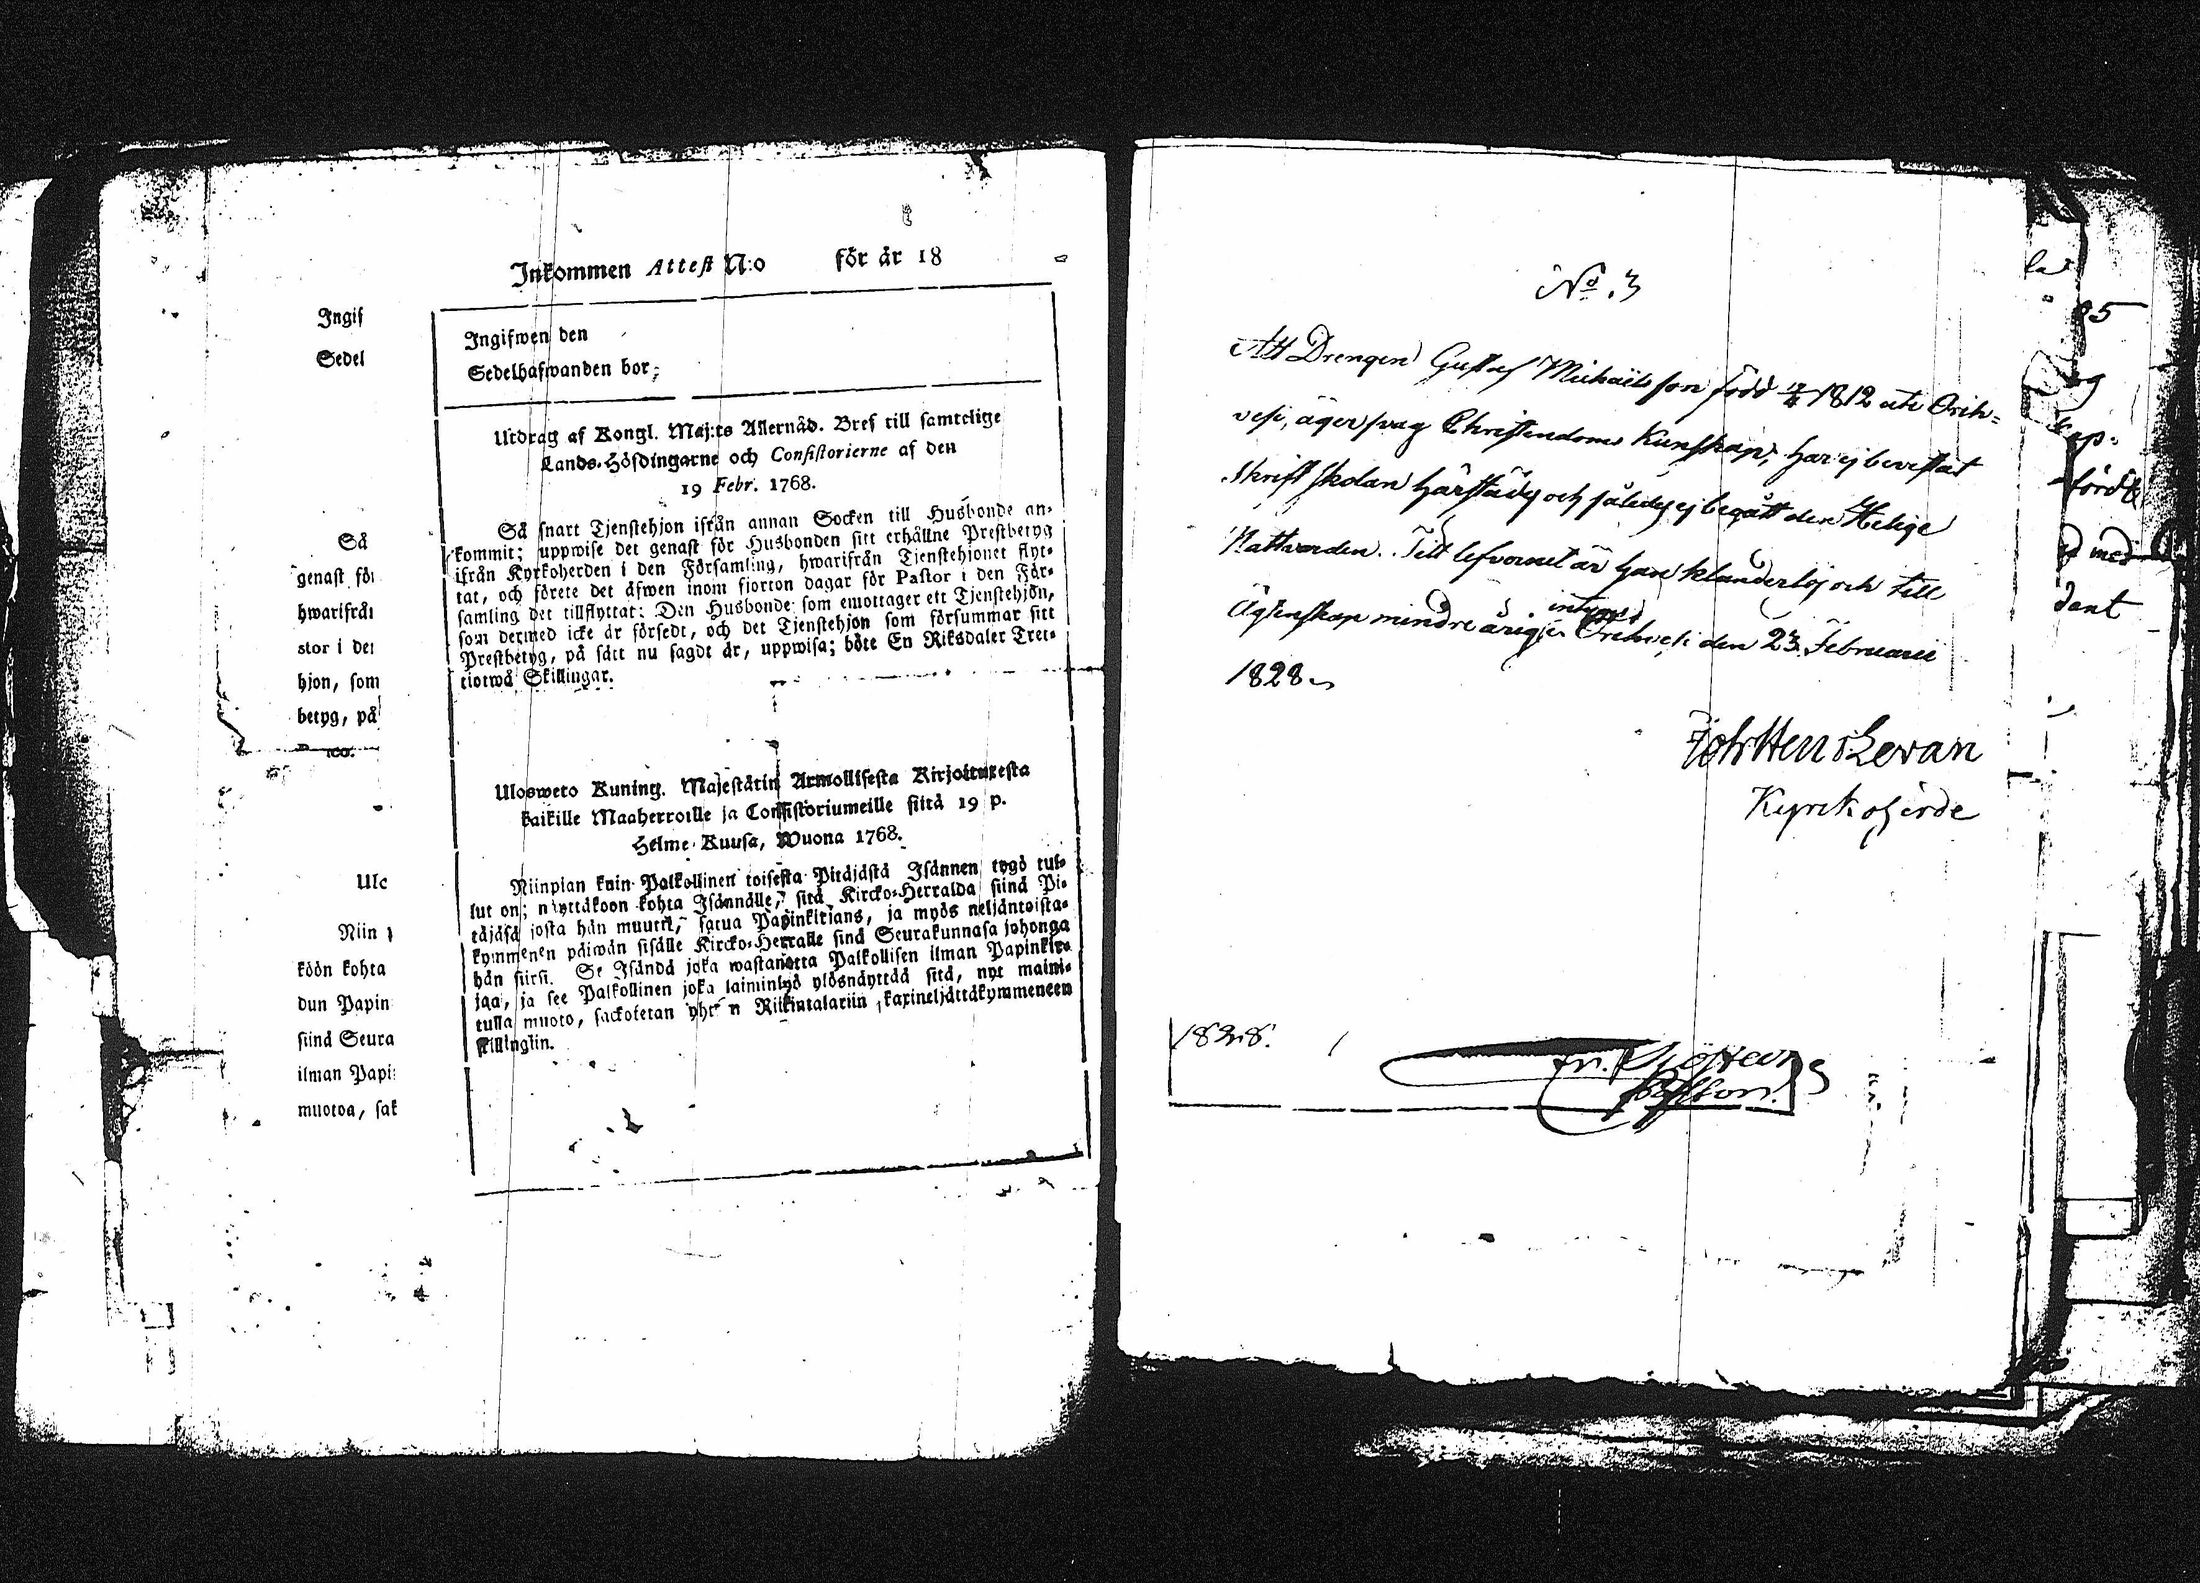 Ingif
Sedel
Så
genast för
hwarifrån
stor i den
hjon, som
betyg, på
Ulo
Niin
köön kohta
dun Papin
siinä Seura
ilman Papi
muotoa, sak
Inkommen Attest N:o för år 18
Ingifwen den
Sedelhafwanden bor
Utdrag af Kongl. Maj:ts Allernåd. Bref till samtelige
Lands-Höfdingarne och Consistorierne af den
19 Febr. 1768.
Så snart Tjenstehjon ifrån annan Socken till Husbonde an-
kommit; uppwise det genast för Husbonden sitt erhållne Prestbetyg
ifrån Kyrkoherden i den Församling, hwarifrån Tjenstehjonet flyt-
tat, och förete det äfwen inom fjorton dagar för Pastor i den För-
samling det tillflyttat: Den Husbonde som emottager ett Tjenstehjon,
som dermed icke är försedt, och det Tjenstehjon som försummar sitt
Prestbetyg, på sätt nu sagdt är, uppwisa; böte En Riksdaler Tret-
tiotwå Skillingar.
Ulosweto Kuning. Majestätin Armollisesta Kirjoituxesta
kaikille Maaherroille ja Consistoriumeille siitä 19 p.
Helme-Kuusa, Wuona 1768.
Niinpian kuin Palkollinen toisesta Pitäjästä Isännen tygö tul-
lut on; näyttäköön kohta Isännälle, sitä Kircko-Herralda siinä Pi-
täjäsä josta hän muutti, satua Papinkirjans, ja myös neljäntoista-
kymmenen päiwän sisälle Kircko-Herralle siinä Seurakunnasa johonga
hän siirsi. Se Isändä joka wastanotta Palkollisen ilman Papinkir-
jaa, ja see Palkollinen joka laiminlyö ylösnäyttää sitä, nyt maini-
tulla muoto, sackotetan yhten Riikintalariin kaxineljättäkymmeneen
killingiin.
No. 3
Att Drengen Gustaf Michaelsson född 1812 uti Orih-
vesi, äger svag Christendoms Kunskap, har ej bevistat
Skriftskolan härstädes och således ej begått den Helige
Nattvarden. Till lefvernet är han klanderlös och till
Ägtenskap mindre årig, intygas
Orihvesi den 23 Februarii
1828.
Joh Hen
Kyrckoherde
1828.
la
95
og
förd
med
dant